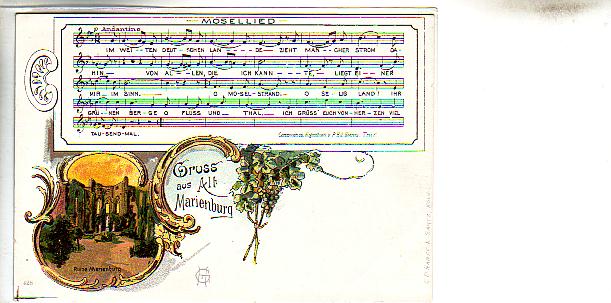 MOSELLIED
Andantino
IM WEI - TEN DEUT - SCHEN LAN - - DE - ZIEHT MAN - CHER STROM DA-
HIN, VON AL - LEN, DIE ICH KANN - - TE, LIEGT EI - NER
MIR IM SINN. O MO-SEL-STRAND, O SE-LIG LAND! IHR
GRÜ - NEN BER - GE O FLUSS UND THAL, ICH GRÜSS' EUCH VON - HER - ZEN VIEL
TAU-SEND-MAL.
Gruss
aus Alt
Marienburg
Ruine Marienburg